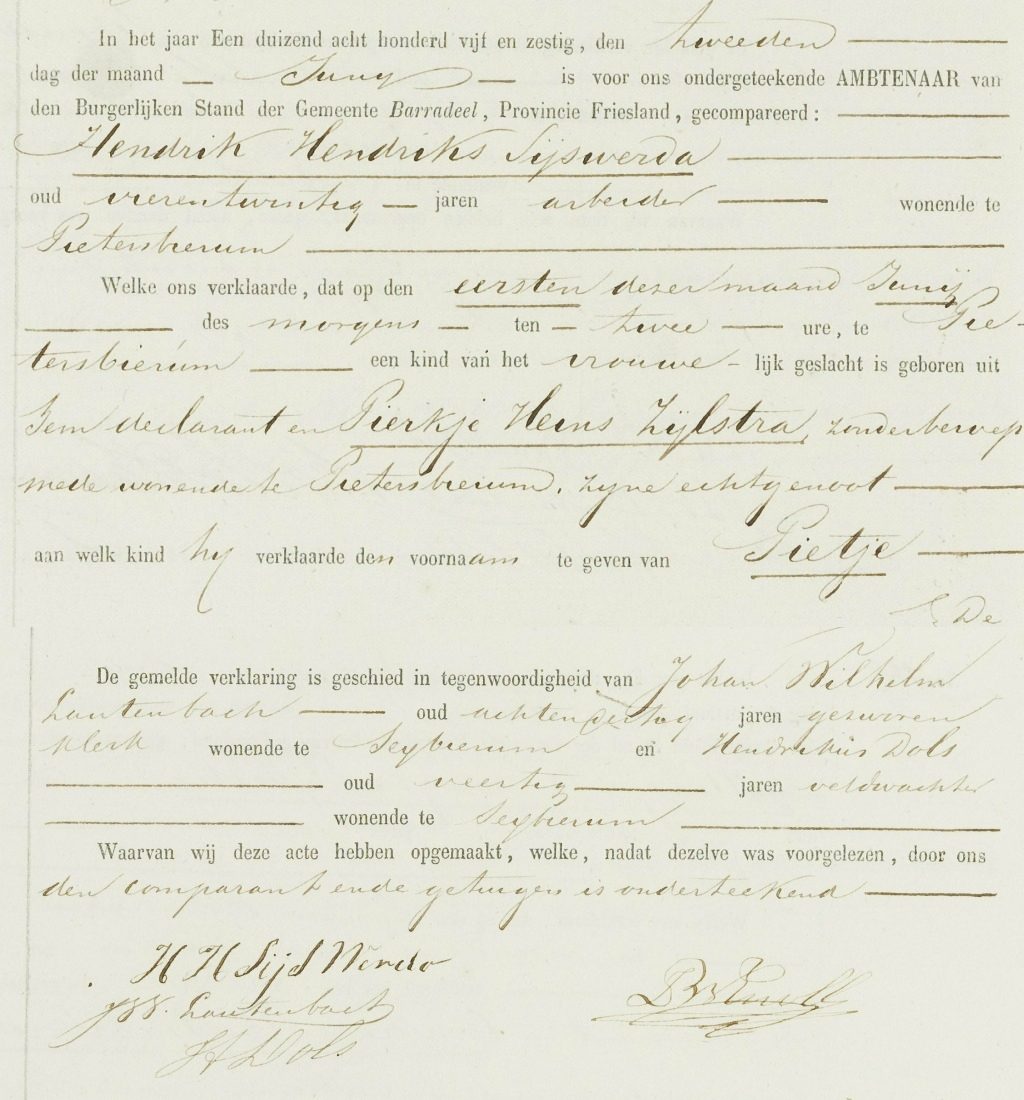 In het jaar Een duizend acht honderd vijf en zestig, den tweeden
dag der maand Juny is voor ons ondergeteekende AMBTENAAR van
den Burgerlijken Stand der Gemeente Barradeel, Provincie Friesland, gecompareerd:
Hendrik Hendriks Sijswerda
oud vierentwintig jaren arbeider wonende te
Pietersbierum
Welke ons verklaarde, dat op den eersten dezer maand Junij
des morgens ten twee ure, te Pie-
tersbierum een kind van het vrouwe- lijk geslacht is geboren uit
hem declarant en Pierkje Heins Zijlstra, zonder beroep
mede wonende te Pietersbierum, zyne echtgenoot
aan welk kind hy verklaarde den voornaam te geven van Pietje
De
De gemelde verklaring is geschied in tegenwoordigheid van Johan Wilhelm
Lautenbach oud achtendertig jaren gezworen
klerk wonende te Sexbierum en Hendrikus Dols
oud veertig jaren veldwachter
wonende te Sexbierum
Waarvan wij deze acte hebben opgemaakt, welke, nadat dezelve was voorgelezen, door ons
den comparant en de getuigen is onderteekend
H H Sijs Werda
JW. Lautenbach
H Dols